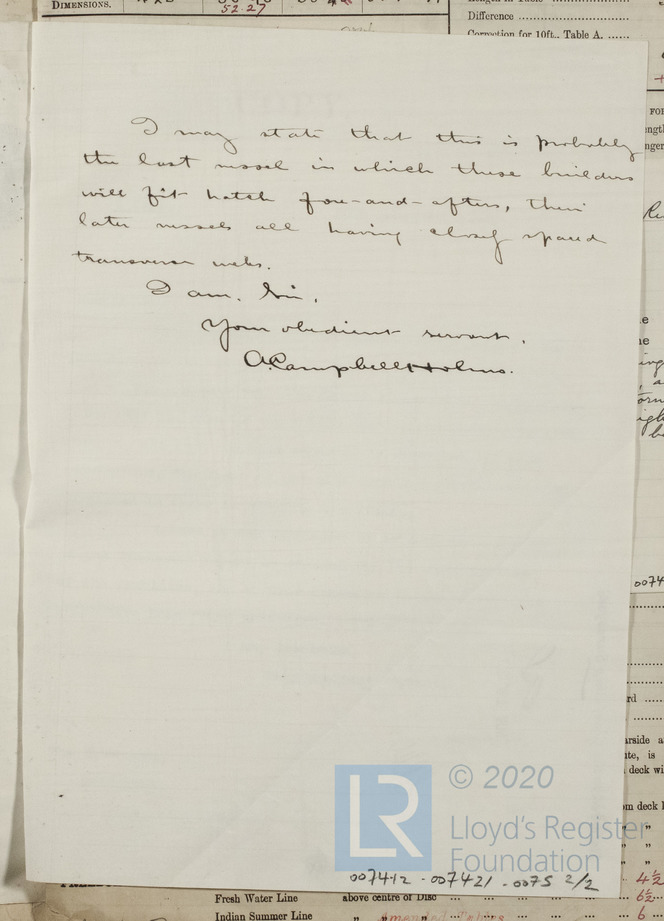 DIMENSIONS.
52.27
Difference
Correction for 10ft., Table A.
I may state that this is probably
the last vessel in which these builders
will fit hatch fore-and-afters, their
later vessels all having closely spaced
transverse webs.
I am, Sir,
Your obedient servant,
A. Campbell Holms.
© 2020
LR
Lloyd's Register
Foundation
007412 - 007421 - 0075 2/2
Fresh Water Line above centre of Disc 6½
Indian Summer Line " " 6